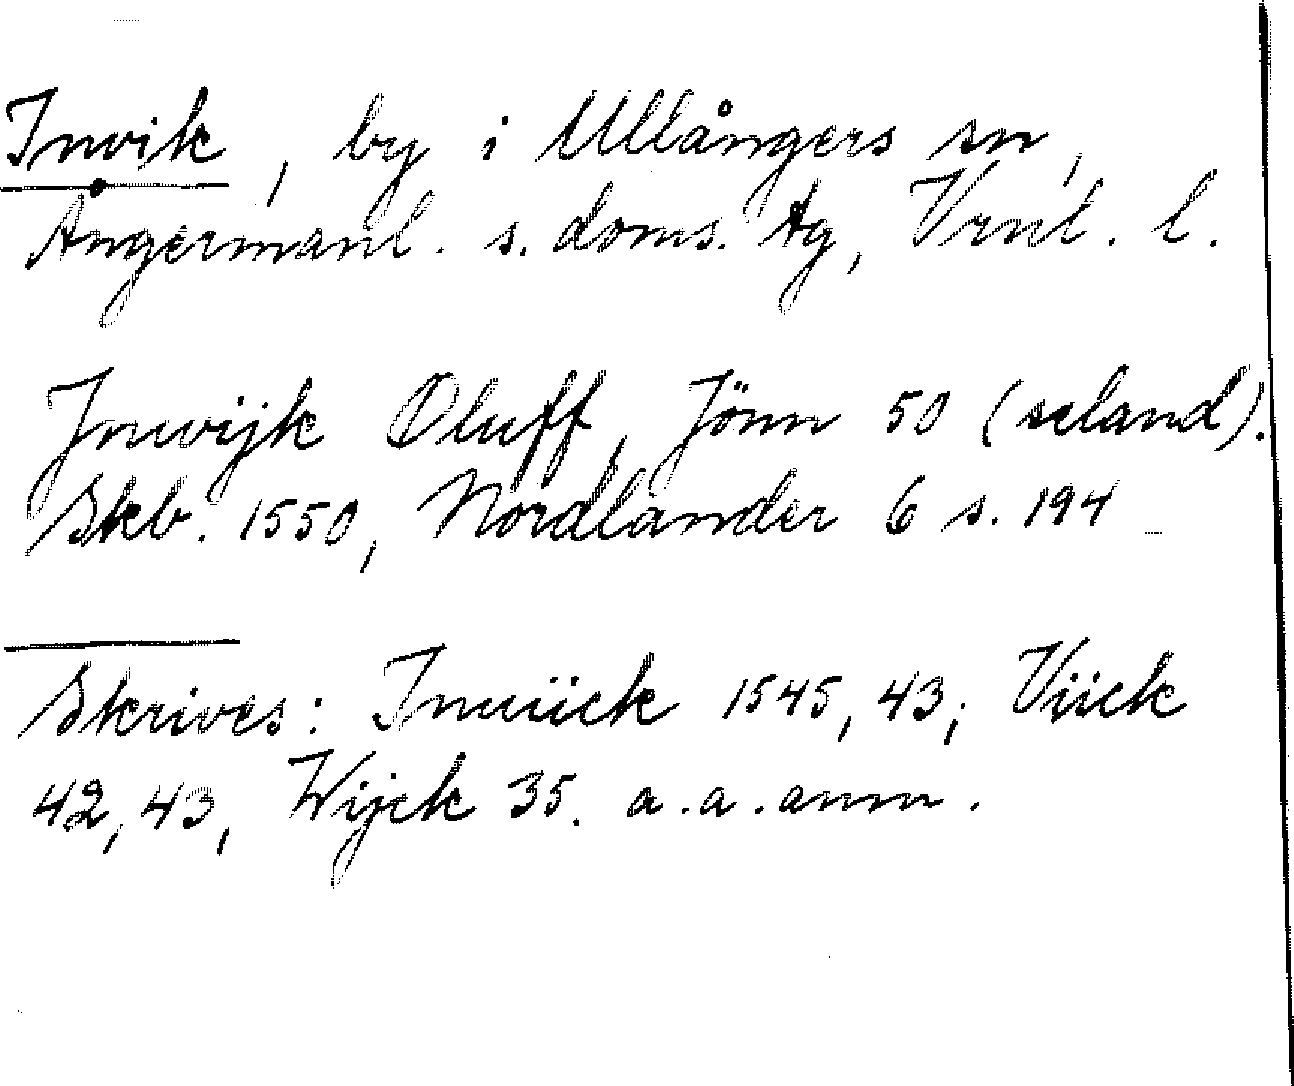 Invik, by i Ullångers sn,
Ångermanl. s. doms. tg, Vrnl. l.
Jnwijk Oluff, Jönn 50 (seland).
Skb. 1550, Nordlander 6 s. 194
Skrives: Inwiick 1545, 43; Viick
42, 43, Wijck 35. a.a. anm.